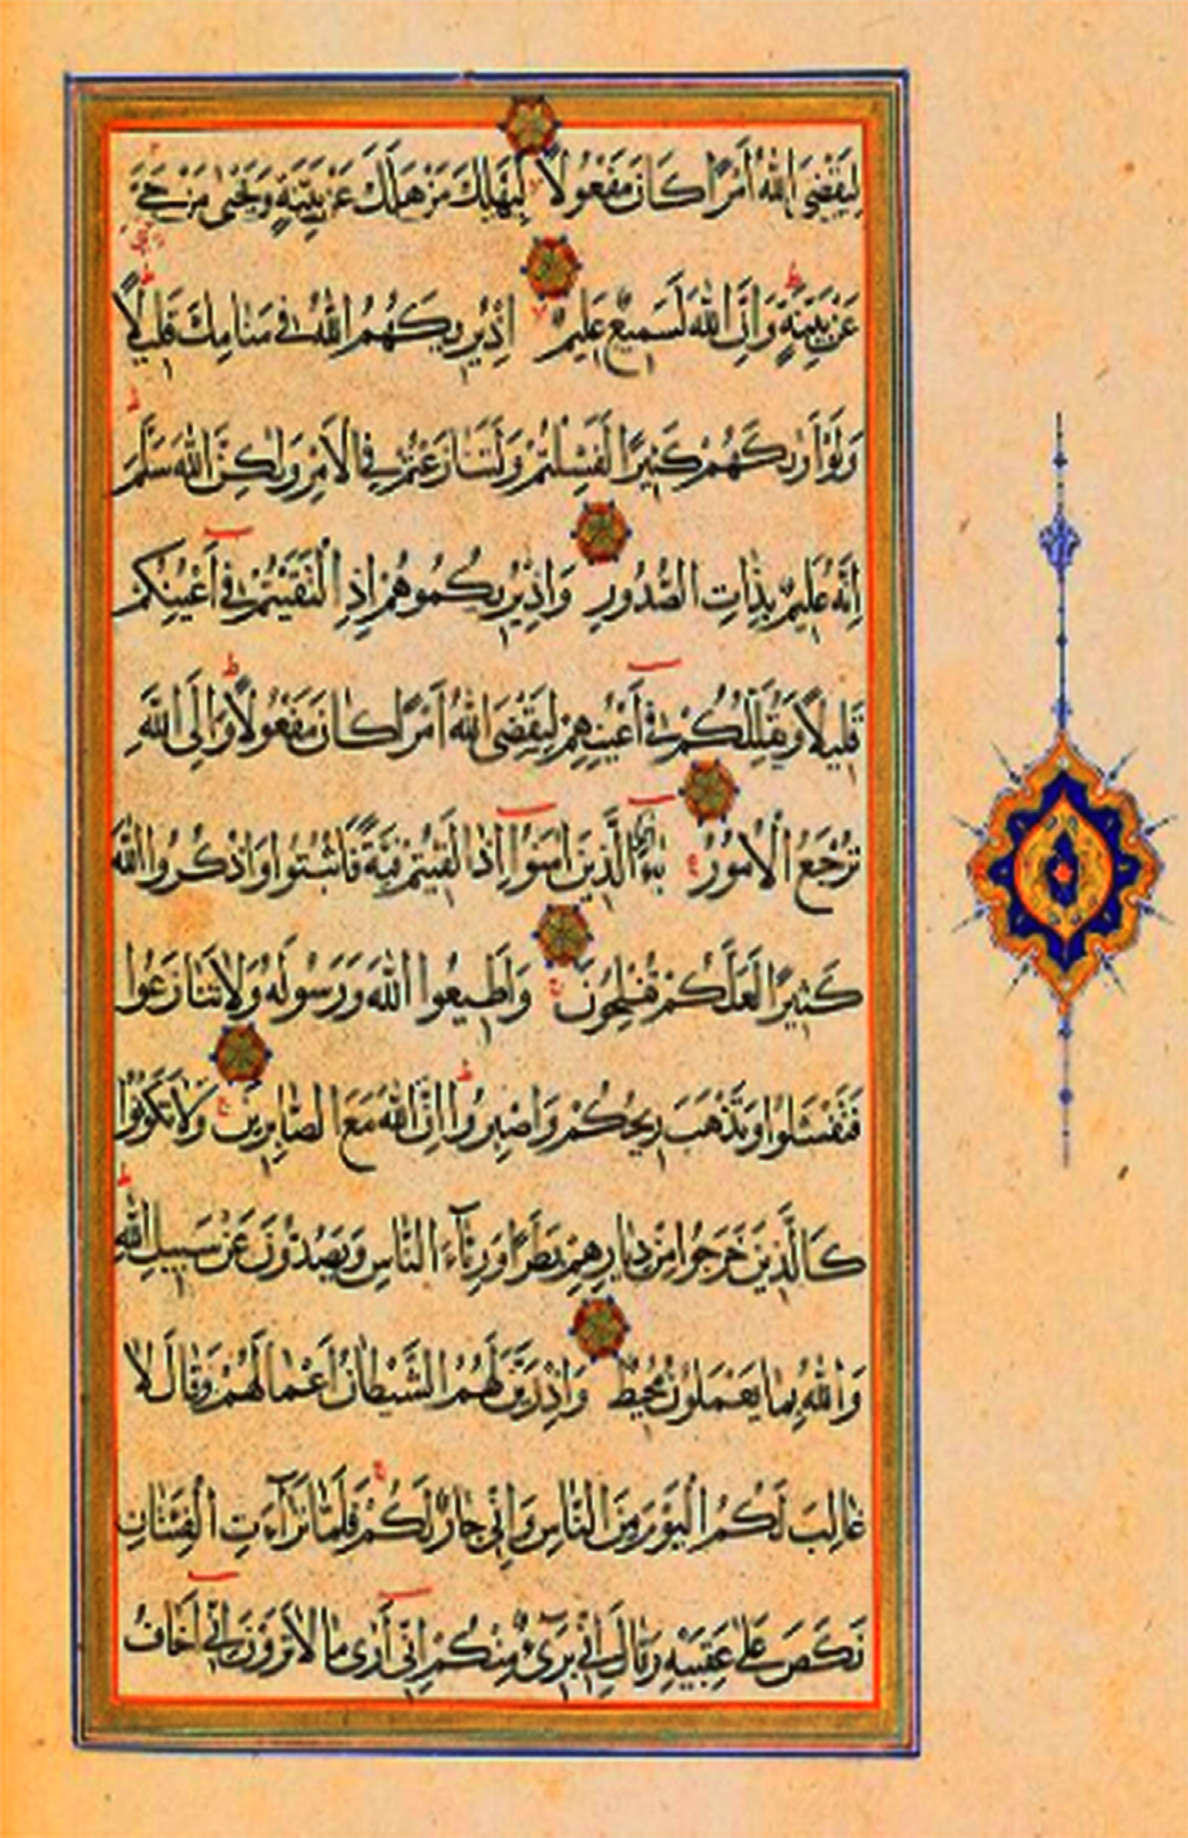 لِيَقْضِيَ اللّٰهُ اَمْرًا كَانَ مَفْعُولًا لِيَهْلِكَ مَنْ هَلَكَ عَنْ بَيِّنَةٍ وَيَحْيٰى مَنْ حَيَّ
عَنْ بَيِّنَةٍ وَاِنَّ اللّٰهَ لَسَمِيعٌ عَلِيمٌ اِذْ يُرِيكَهُمُ اللّٰهُ فِي مَنَامِكَ قَلِيلًا
وَلَوْ اَرٰيكَهُمْ كَثِيرًا لَفَشِلْتُمْ وَلَتَنَازَعْتُمْ فِي الْاَمْرِ وَلٰكِنَّ اللّٰهَ سَلَّمَ
اِنَّهُ عَلِيمٌ بِذَاتِ الصُّدُورِ وَاِذْ يُرِيكُمُوهُمْ اِذِ الْتَقَيْتُمْ فِي اَعْيُنِكُمْ
قَلِيلًا وَيُقَلِّلُكُمْ فِي اَعْيُنِهِمْ لِيَقْضِيَ اللّٰهُ اَمْرًا كَانَ مَفْعُولًا وَاِلَى اللّٰهِ
تُرْجَعُ الْاُمُورُ يَا اَيُّهَا الَّذِينَ اٰمَنُوا اِذَا لَقِيتُمْ فِئَةً فَاثْبُتُوا وَاذْكُرُوا اللّٰهَ
كَثِيرًا لَعَلَّكُمْ تُفْلِحُونَ وَاَطِيعُوا اللّٰهَ وَرَسُولَهُ وَلَا تَنَازَعُوا
فَتَفْشَلُوا وَتَذْهَبَ رِيحُكُمْ وَاصْبِرُوا اِنَّ اللّٰهَ مَعَ الصَّابِرِينَ وَلَا تَكُونُوا
كَالَّذِينَ خَرَجُوا مِنْ دِيَارِهِمْ بَطَرًا وَرِئَآءَ النَّاسِ وَيَصُدُّونَ عَنْ سَبِيلِ اللّٰهِ
وَاللّٰهُ بِمَا يَعْمَلُونَ مُحِيطٌ وَاِذْ زَيَّنَ لَهُمُ الشَّيْطَانُ اَعْمَالَهُمْ وَقَالَ لَا
غَالِبَ لَكُمُ الْيَوْمَ مِنَ النَّاسِ وَاِنِّي جَارٌ لَكُمْ فَلَمَّا تَرَآءَتِ الْفِئَتَانِ
نَكَصَ عَلٰى عَقِبَيْهِ وَقَالَ اِنِّي بَرِيٓءٌ مِنْكُمْ اِنِّي اَرٰى مَا لَا تَرَوْنَ اِنِّي اَخَافُ